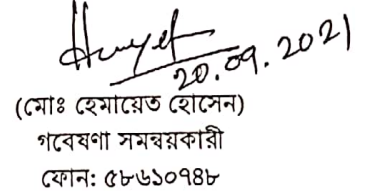 20.09.2021
(মোঃ হেমায়েত হোসেন)
গবেষণা সমন্বয়কারী
ফোন: ৫৮৬১০৭৪৮